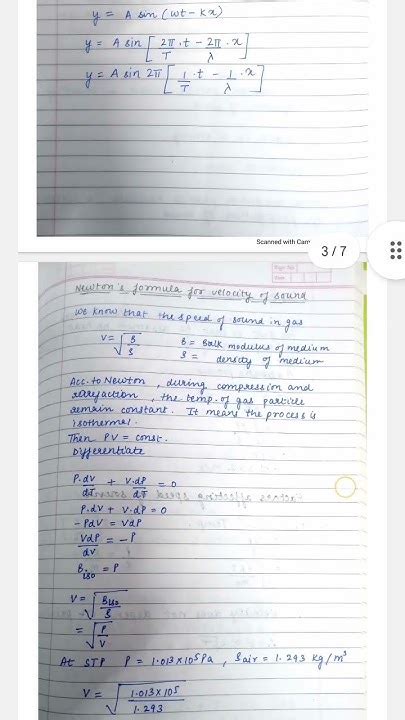 y = A sin (ωt - kx)
y = A sin [2π/T . t - 2π/λ . x]
y = A sin 2π [1/T . t - 1/λ . x]
Scanned with Cam
3/7
Page No.
Date
Newton's formula for velocity of sound
We know that the speed of sound in gas
V = √B/ρ B = Bulk modulus of medium
ρ = density of medium
Acc. to Newton, during compression and
rarefaction, the temp. of gas particle
remain constant. It means the process is
isothermal.
Then PV = const.
Differentiate
P.dV/dT + V.dP/dT = 0
P.dV + V.dP = 0
-PdV = VdP
VdP/dV = -P
Biso = P
V = √Biso/ρ
= √P/V
At STP P = 1.013×10⁵Pa, ρair = 1.293 Kg/m³
V = √1.013×10⁵/1.293